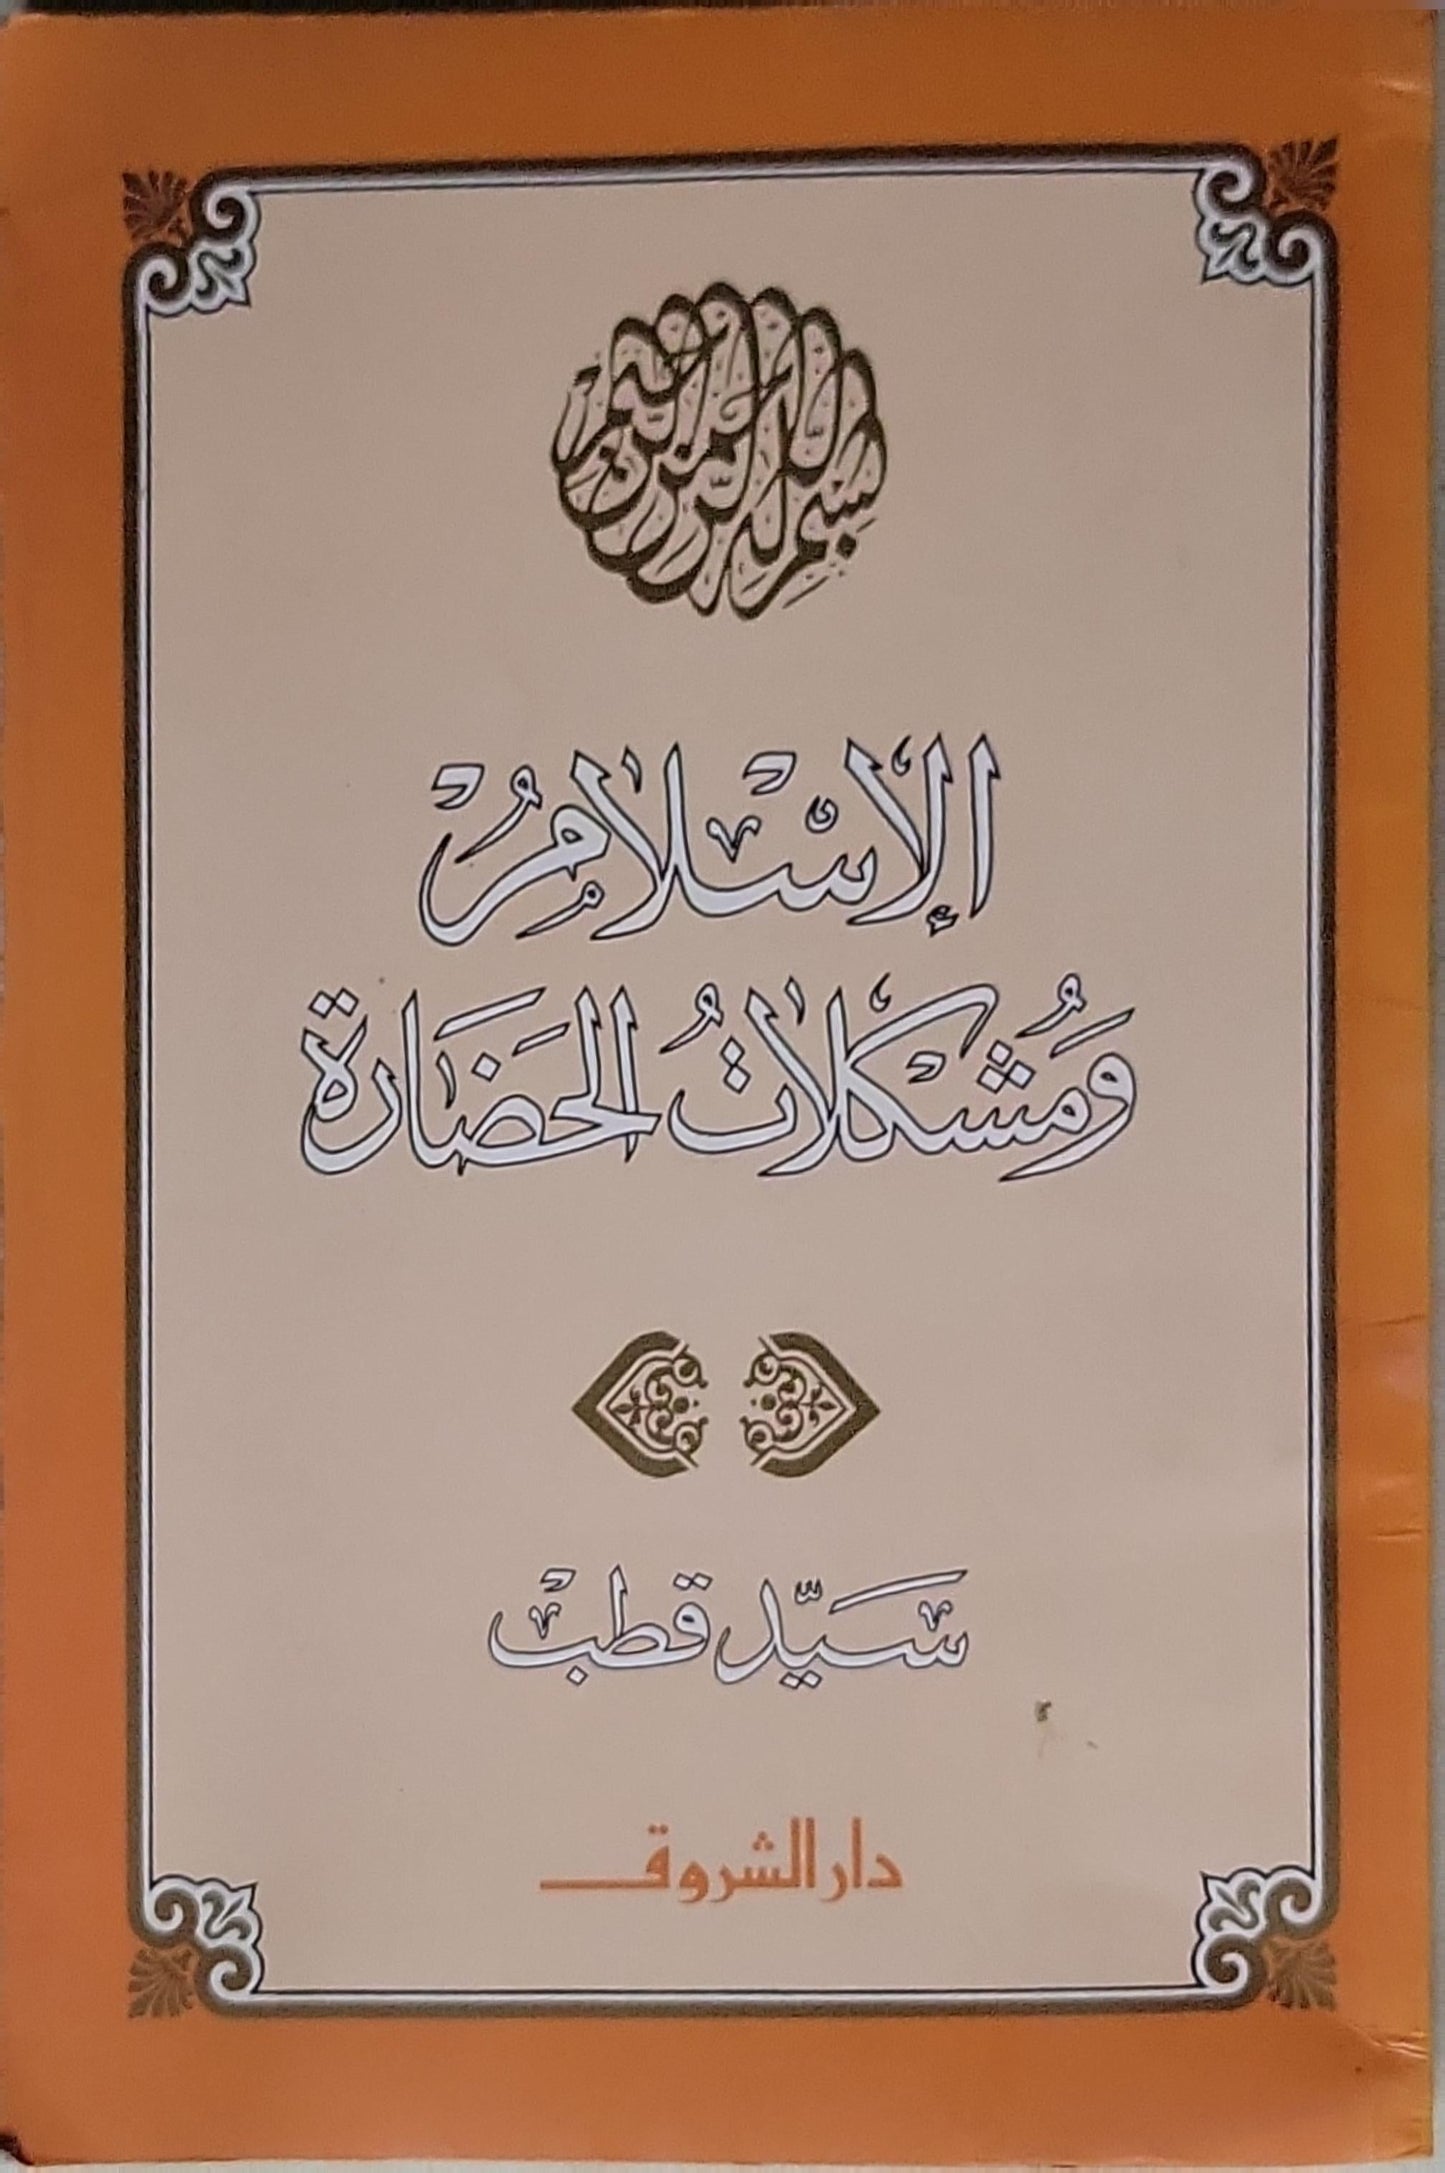 بِسْمِ اللهِ الرَّحْمٰنِ الرَّحِيمِ
الإِسْلَامُ
وَمُشْكِلَاتُ الحَضَارَة
سَيِّد قطبْ
دار الشروق